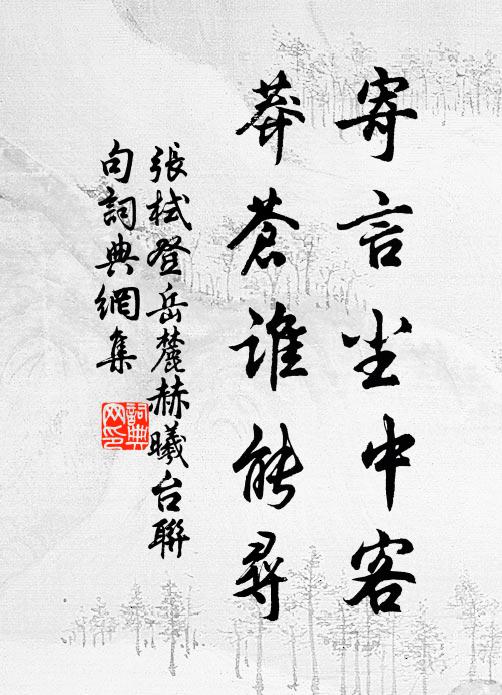 寄言尘中客
莽蒼誰能尋
張栻登岳麓赫曦台聯
句詞典網集
詞典网印